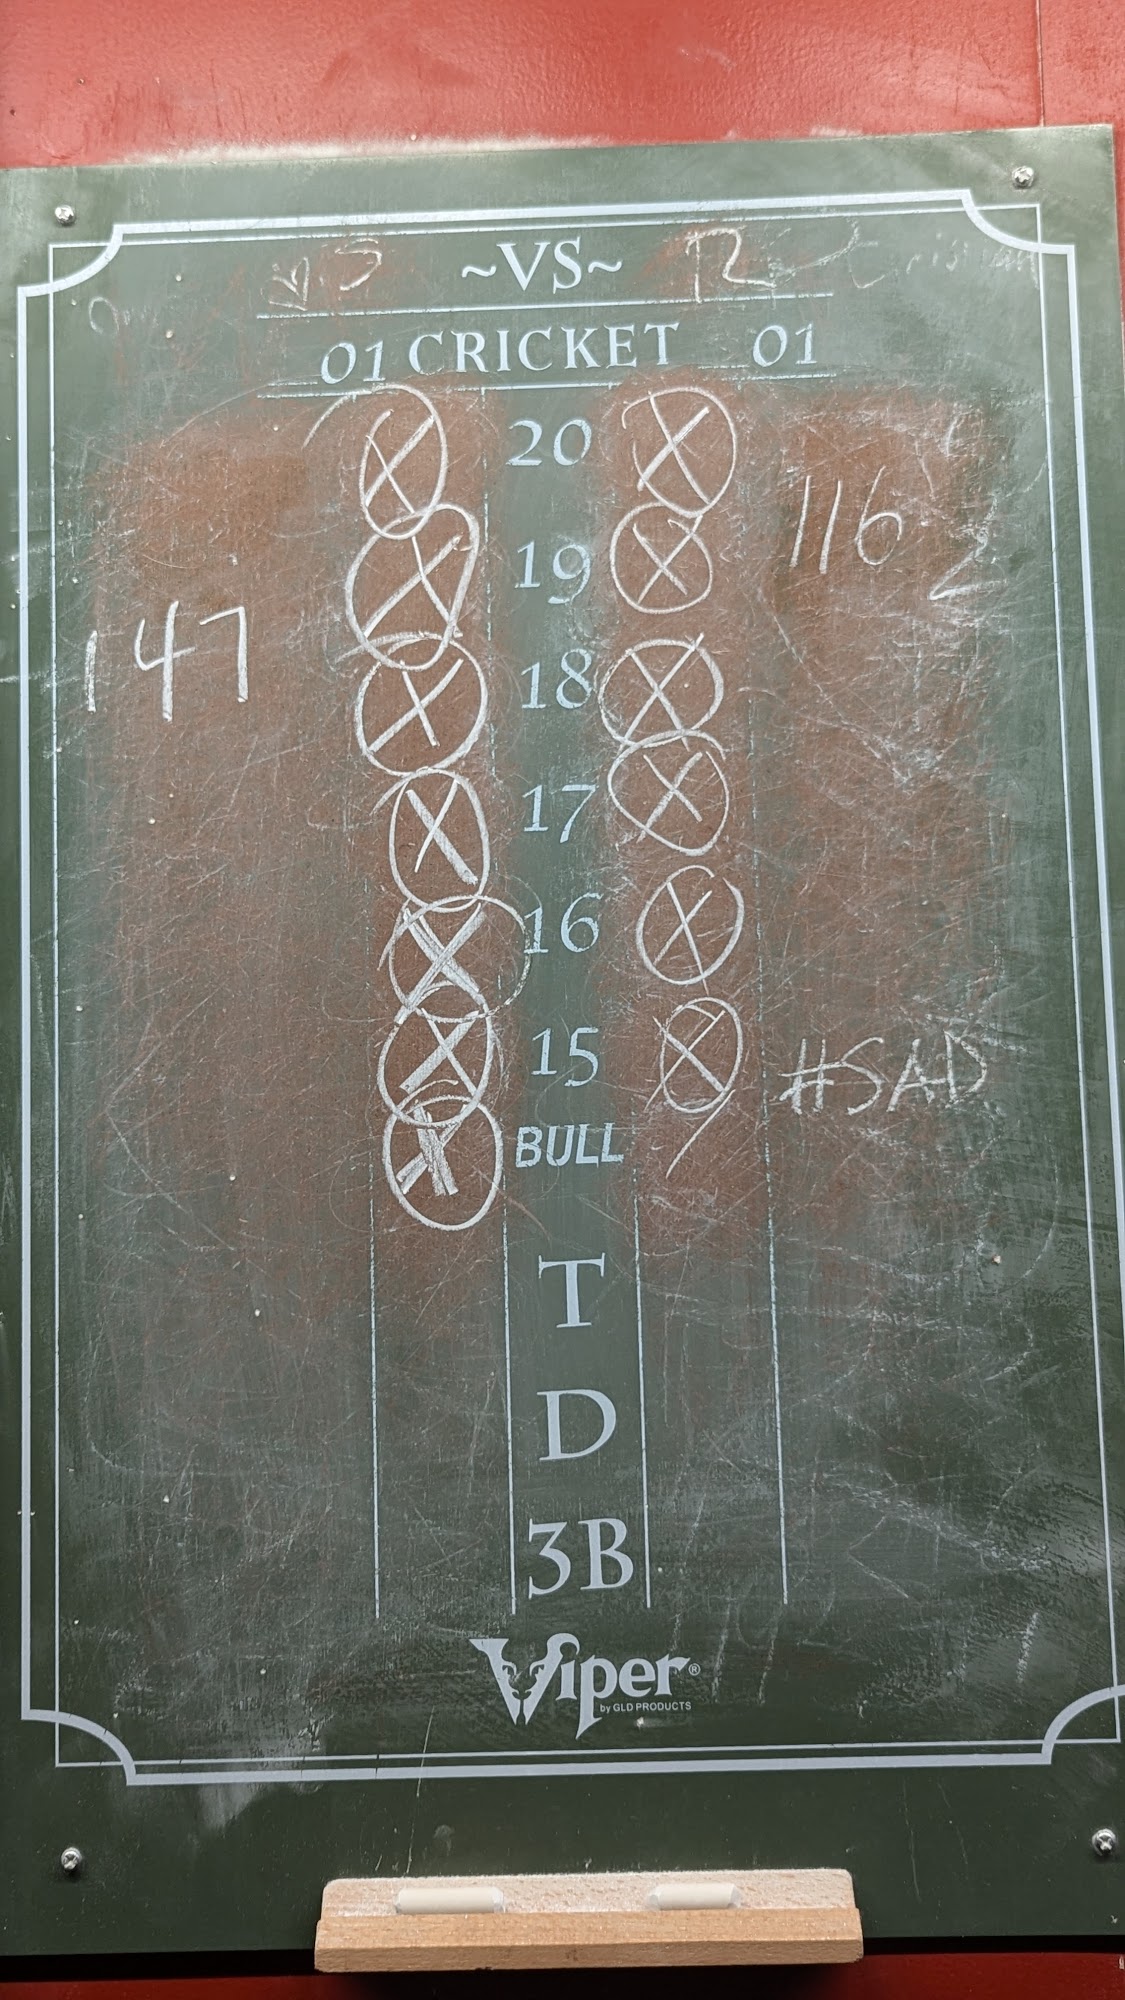 ~VS~ R
01 CRICKET 01
X 20 X
116
X 19 X
147
X 18 X
X 17 X
X 16 X
X 15 X #SAD
X BULL /
T
D
3B
Viper®
by GLD PRODUCTS